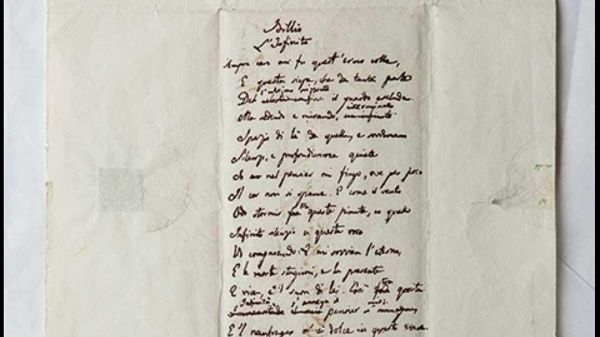 Idillio
L'Infinito
Sempre caro mi fu quest'ermo colle,
E questa siepe, che da tanta parte
l'ultimo orizzonte
Del celeste confine il guardo esclude.
interminato
Ma sedendo e mirando,
Spazio di là da quella, e sovrumani
Silenzi, e profondissima quiete
Io nel pensier mi fingo, ove per poco
Il cor non si spaura. E come il vento
Odo stormir fra queste piante, io quello
Infinito silenzio a questa voce
Vo comparando: E mi sovvien l'eterno,
E le morte stagioni, e la presente
E viva, e 'l suon di lei. Così questa
Infinità s'annega il
Immensitade pensier
E 'l naufragar m'è dolce in questo mare.